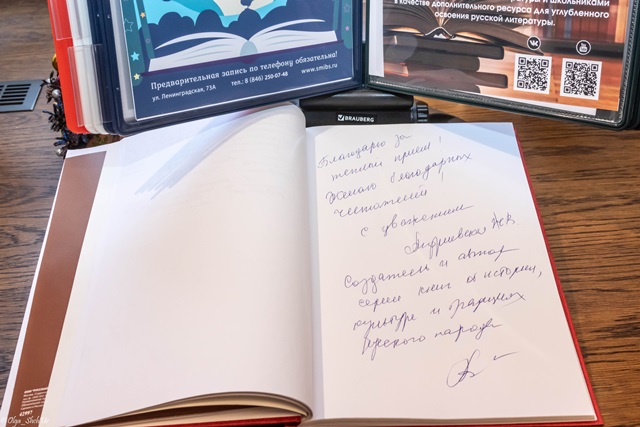 Предварительная запись по телефону обязательна!
ул. Ленинградская, 73А
тел.: 8 (846) 250-07-48
www.smibs.ru
и школьниками
в качестве дополнительного ресурса для углубленного
освоения русской литературы.
BRAUBERG
Благодарю за
теплый приём!
Желаю благодарных
читателей!
с уважением
Создатель и автор
серии книг об истории,
культуре и традициях
русского народа